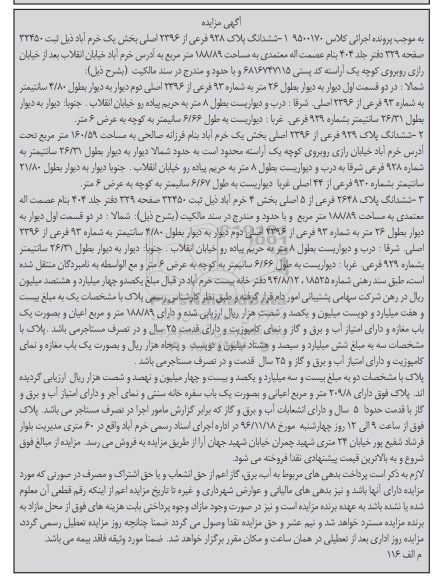 آگهی مزایده
به موجب پرونده اجرائی کلاس ۹۵۰۰۱۷۰ ۱-ششدانگ پلاک ۹۲۸ فرعی از ۲۳۹۶ اصلی بخش یک خرم آباد ذیل ثبت ۳۲۴۵۰
صفحه ۳۲۹ دفتر جلد ۴۰۴ بنام عصمت اله معتمدی به مساحت ۱۸۸/۸۹ متر مربع به آدرس خرم آباد خیابان انقلاب بعد از خیابان
رازی روبروی کوچه یک آراسته کد پستی ۶۸۱۶۷۴۷۱۱۵ و با حدود و مندرج در سند مالکیت (بشرح ذیل):
شمالا : در دو قسمت اول دیوار به دیوار بطول ۲۶ متر به شماره ۹۳ فرعی از ۲۳۹۶ اصلی دوم دیوار به دیوار بطول ۴/۸۰ سانتیمتر
به شماره ۹۳ فرعی از ۲۳۹۶ اصلی. شرقا : درب و دیواریست بطول ۸ متر به حریم پیاده رو خیابان انقلاب . جنوبا: دیوار به دیوار
بطول ۲۶/۳۱ سانتیمتر بشماره ۹۲۹ فرعی. غربا : دیواریست به طول ۶/۶۶ سانیمتر به کوچه به عرض ۶ متر.
۲ -ششدانگ پلاک ۹۲۹ فرعی از ۲۳۹۶ اصلی بخش یک خرم آباد بنام فرزانه صالحی به مساحت ۱۶۰/۵۹ متر مربع تحت
آدرس خرم آباد خیابان رازی روبروی کوچه یک آراسته محدود است به حدود شمالا دیوار به دیوار بطول ۲۶/۳۱ سانتیمتر به
شماره ۹۲۸ فرعی شرقا به درب و دیواریست بطول ۸ متر به حریم پیاده رو خیابان انقلاب . جنوبا دیوار به دیوار بطول ۲۱/۸۰
سانتیمتر بشماره ۹۳۰ فرعی از ۴۴ اصلی غربا دیواریست به طول ۶/۶۷ سانیمتر به کوچه به عرض ۶ متر.
۳ -ششدانگ پلاک ۲۶۴۸ فرعی از ۵ اصلی بخش ۴ خرم آباد ذیل ثبت ۳۲۴۵۰ صفحه ۳۲۹ دفتر جلد ۴۰۴ بنام عصمت اله
معتمدی به مساحت ۱۸۸/۸۹ متر مربع و با حدود و مندرج در سند مالکیت (بشرح ذیل): شمالا : در دو قسمت اول دیوار به
دیوار بطول ۲۶ متر به شماره ۹۳ فرعی از ۲۳۹۶ اصلی دوم دیوار به دیوار بطول ۴/۸۰ سانتیمتر به شماره ۹۳ فرعی از ۲۳۹۶
اصلی. شرقا : درب و دیواریست بطول ۸ متر به حریم پیاده رو خیابان انقلاب . جنوبا: دیوار به دیوار بطول ۲۶/۳۱ سانتیمتر
بشماره ۹۲۹ فرعی. غربا : دیواریست به طول ۶/۶۶ سانیمتر به کوچه به عرض ۶ متر و مع الواسطه به نامبردگان منتقل شده
است، طبق سند رهنی شماره ۱۸۵۲۵ ، ۹۴/۸/۱۲ دفتر خانه بیست خرم آباد در قبال مبلغ یکصدو چهار میلیارد و هشتصد میلیون
ریال در رهن شرکت سهامی پشتیبانی امور دام قرار گرفته و طبق نظر کارشناس رسمی پلاک با مشخصات یک به مبلغ بیست
و هفت میلیارد و دویست میلیون و یکصد و شصت هزار ریال ارزیابی شده و دارای ۱۸۸/۸۹ متر و مربع اعیان و بصورت یک
باب مغازه و دارای امتیاز آب و برق و گاز و نمای کامپوزیت و دارای قدمت ۲۵ سال و در تصرف مستاجرمی باشد . پلاک با
مشخصات سه به مبلغ شش میلیارد و سیصد و هشتاد میلیون و دویست و پنجاه هزار ریال و بصورت یک باب مغازه و نمای
کامپوزیت و دارای امتیاز آب و برق و گاز و ۲۵ سال قدمت و در تصرف مستاجرمی باشد .
پلاک با مشخصات دو به مبلغ بیست و سه میلیارد و یکصد و بیست و چهار میلیون و نهصد و شصت هزار ریال ارزیابی گردیده
اند. پلاک فوق دارای ۲۰۹/۸ متر و مربع اعیانی و بصورت یک باب سفره خانه سنتی و نمای آجر و دارای امتیاز آب و برق و
گاز با قدمت حدودا ۵ سال و دارای انشعابات آب و برق و گاز که برابر گزارش مامور اجرا در تصرف مستاجر می باشد پلاک
فوق از ساعت ۹ الی ۱۲ روز چهارشنبه مورخ ۹۶/۱۱/۱۸ در اداره اجرای اسناد رسمی خرم آباد واقع در ۶۰ متری مدیریت بلوار
فرشاد شفیع پور خیابان ۲۴ متری شهید چمران خیابان شهید جهان آرا از طریق مزایده به فروش می رسد. مزایده از مبالغ فوق
شروع و به بالاترین قیمت پیشنهادی نقدا فروخته می شود.
لازم به ذکر است پرداخت بدهی های مربوط به آب، برق، گاز اعم از حق انشعاب و یا حق اشتراک و مصرف در صورتی که مورد
مزایده دارای آنها باشد و نیز بدهی های مالیاتی و عوارض شهرداری و غیره تا تاریخ مزایده اعم از اینکه رقم قطعی آن معلوم
شده یا نشده باشد به عهده برنده مزایده است و نیز در صورت وجود مازاد، وجوه پرداختی بابت هزینه های فوق از محل مازاد به
برنده مزایده مسترد خواهد شد و نیم عشر و حق مزایده نقدا وصول می گردد ضمنا چنانچه روز مزایده تعطیل رسمی گردد،
مزایده روز اداری بعد از تعطیلی در همان ساعت و مکان مقرر برگزار خواهد شد. ضمنا مورد وثیقه فاقد بیمه می باشد.
م الف ۱۱۶